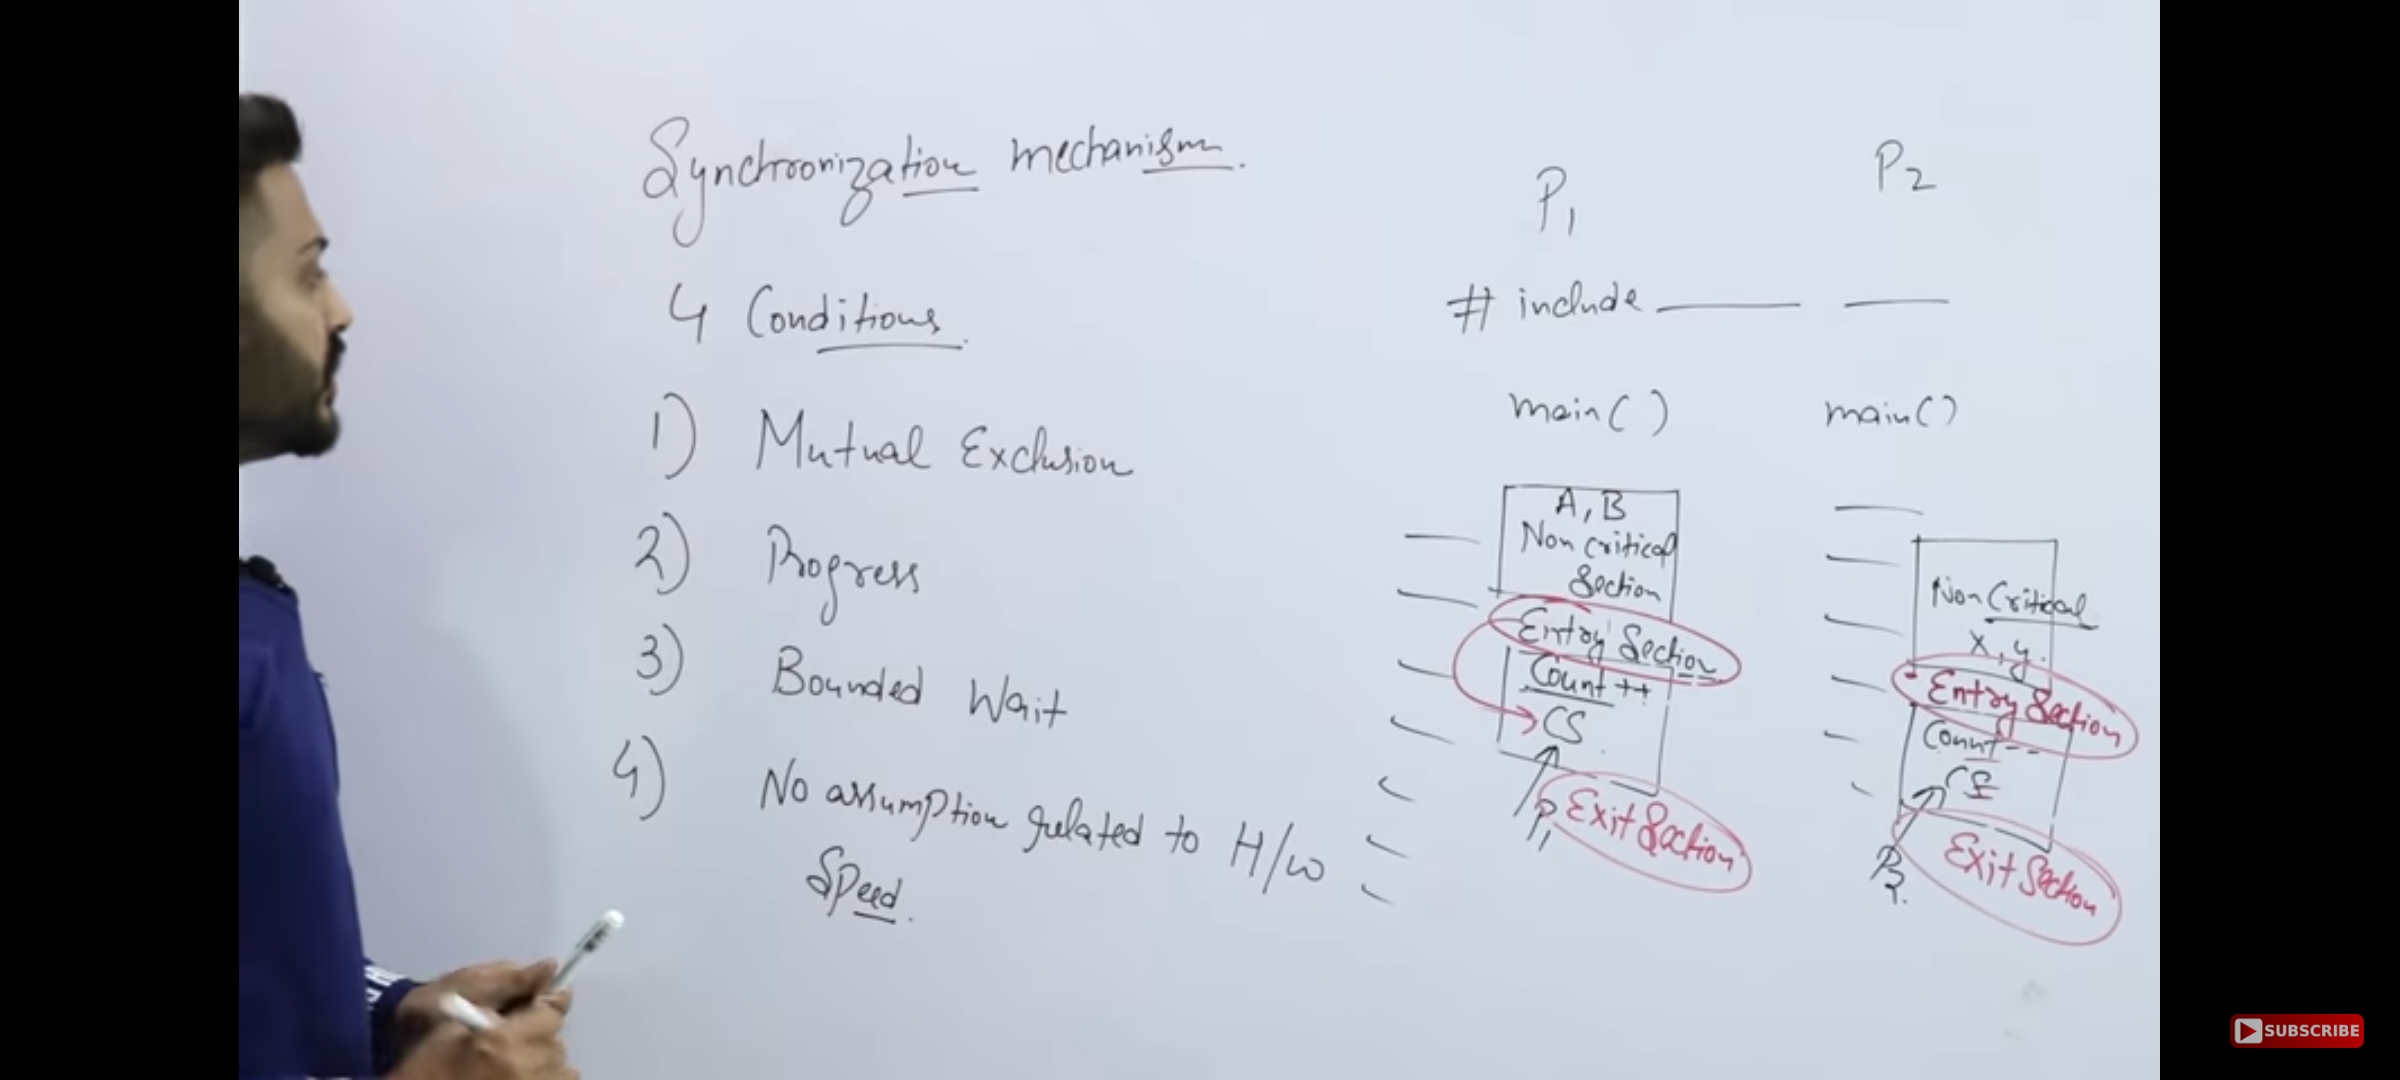 Synchronization mechanism.
4 Conditions.
1) Mutual Exclusion
2) Progress
3) Bounded Wait
4) No assumption related to H/W
Speed.
P1
# include
main( )
A, B
Non critical
Section
Entry Section
Count++
CS
P1
Exit Section
P2
main()
Non Critical
X, y.
Entry Section
Count--
CS
P2.
Exit Section
SUBSCRIBE